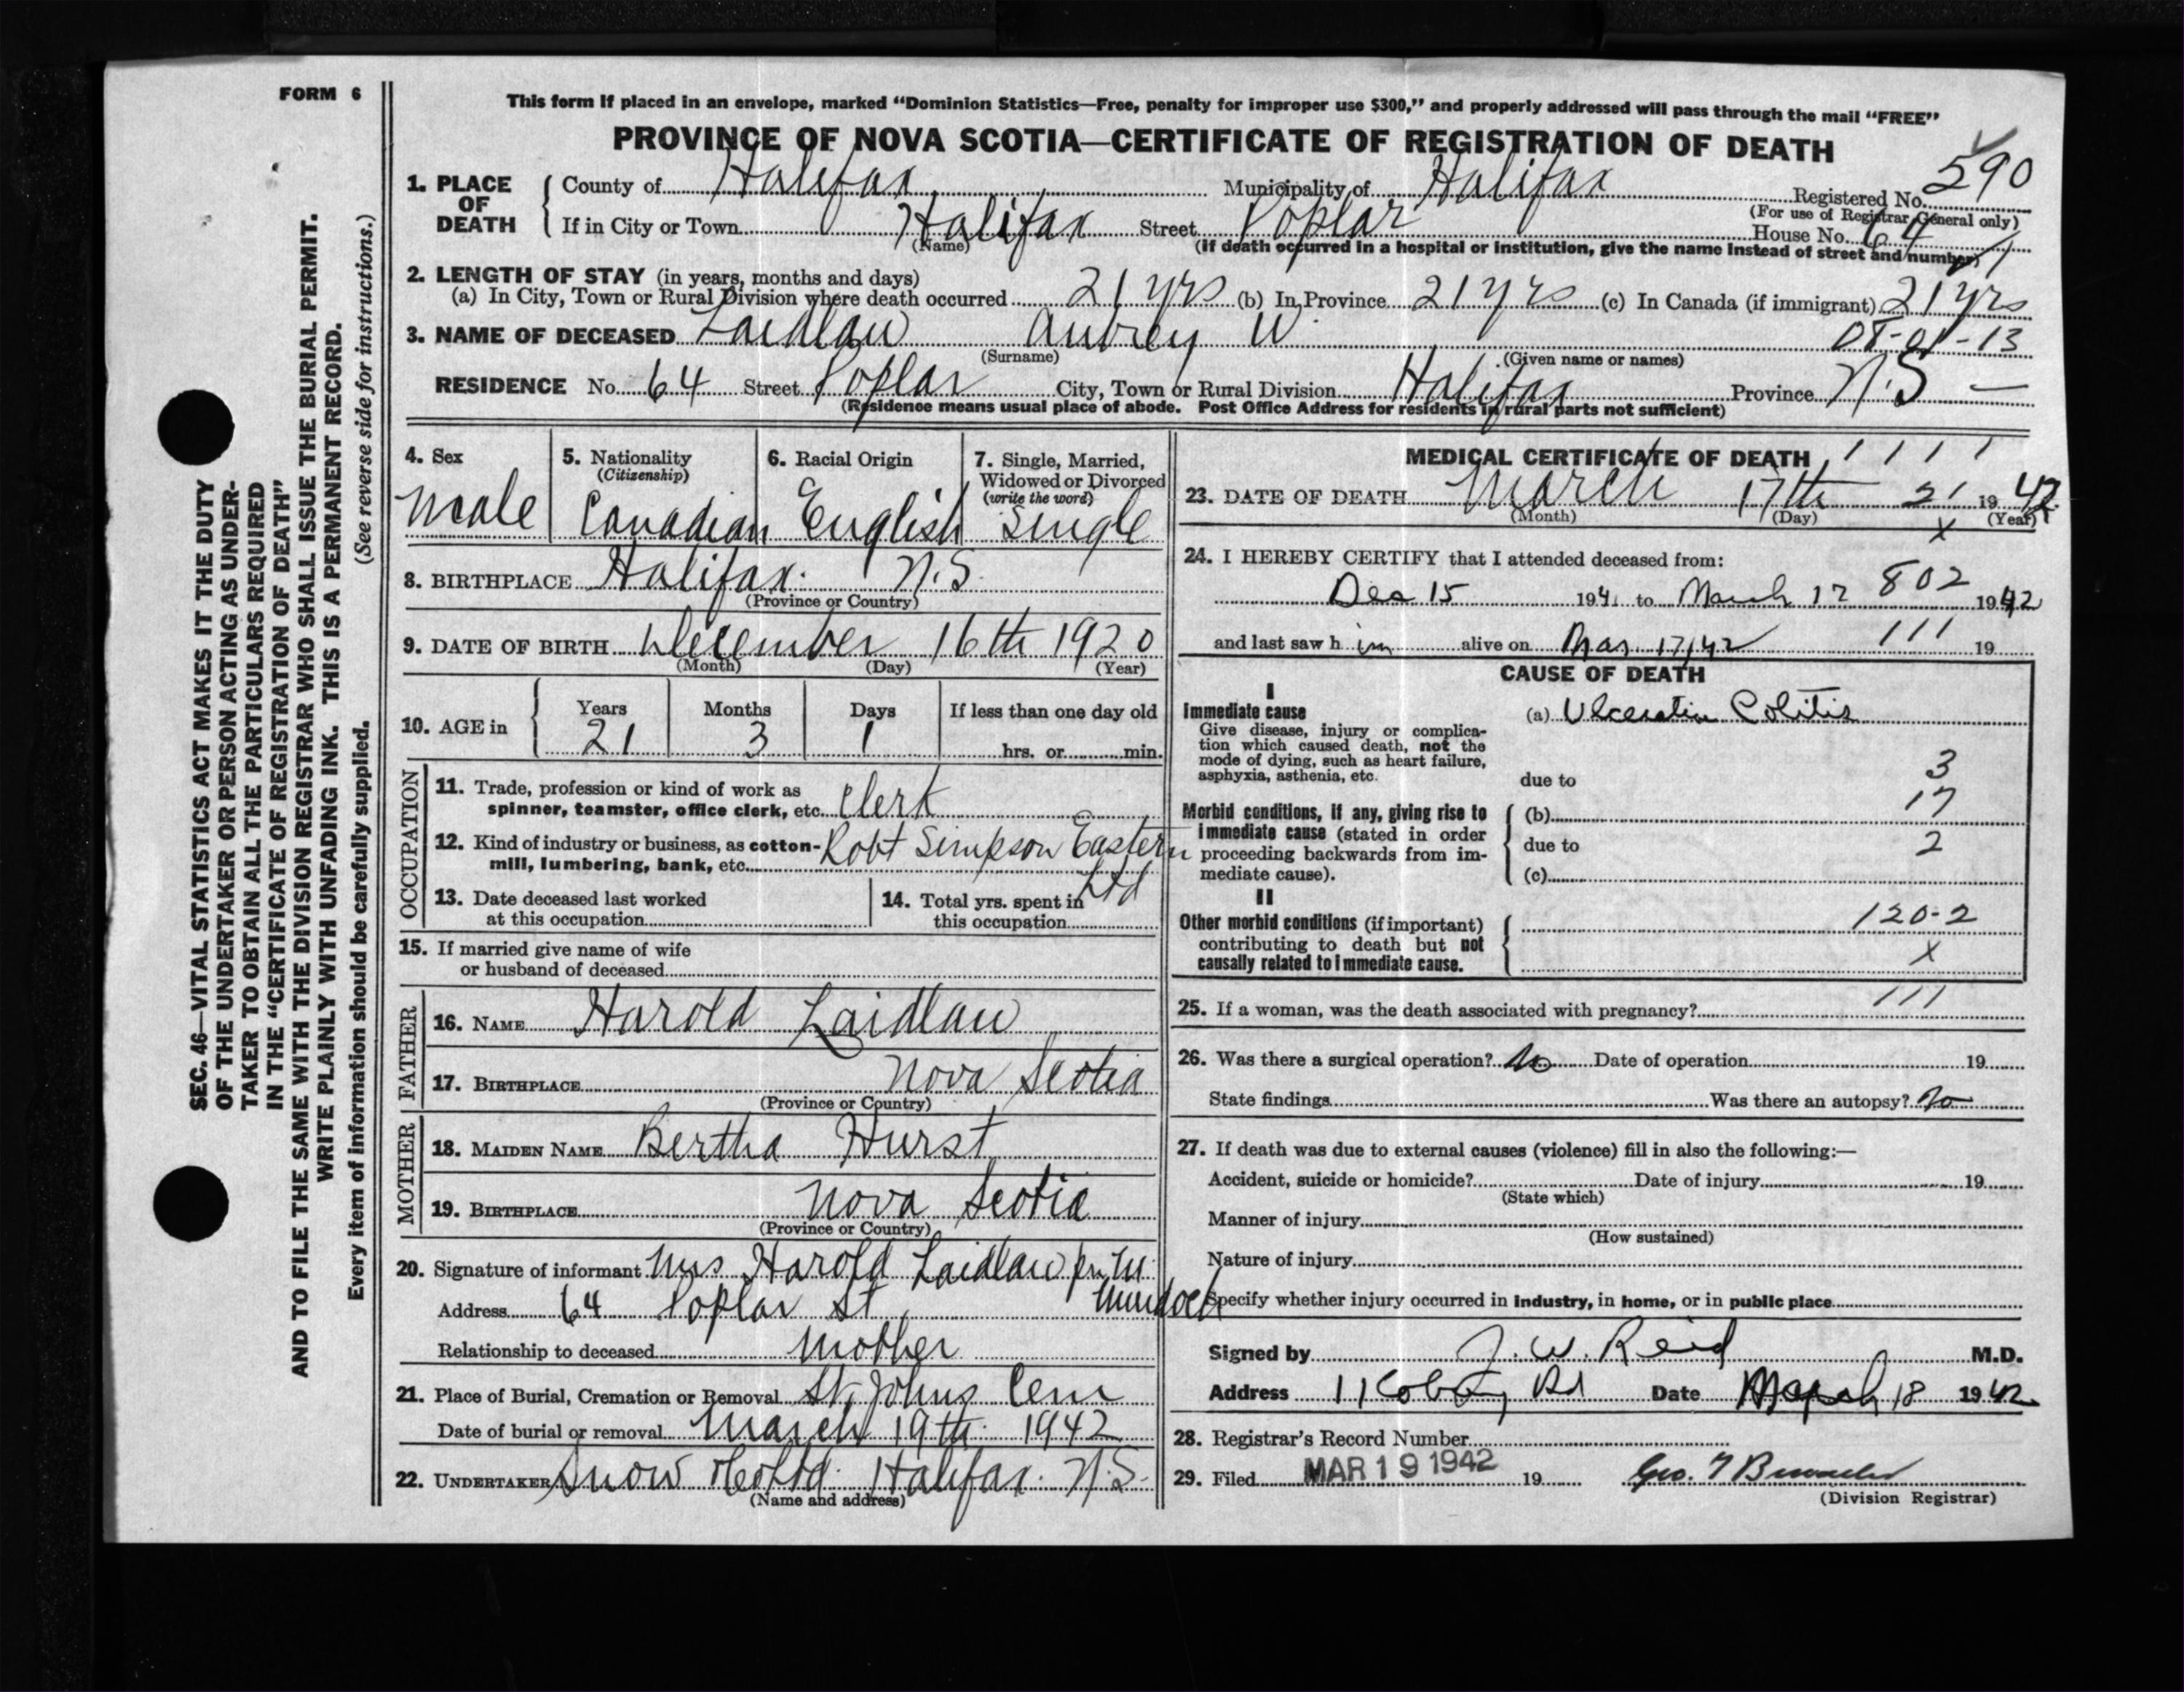 FORM 6
This form if placed in an envelope, marked “Dominion Statistics—Free, penalty for improper use $300,” and properly addressed will pass through the mail “FREE”
PROVINCE OF NOVA SCOTIA—CERTIFICATE OF REGISTRATION OF DEATH
1. PLACE OF DEATH
County of Halifax Municipality of Halifax Registered No. 590
(For use of Registrar General only)
If in City or Town Halifax Street Poplar House No. 64
(Name) (If death occurred in a hospital or institution, give the name instead of street and number)
2. LENGTH OF STAY (in years, months and days)
(a) In City, Town or Rural Division where death occurred 21 yrs (b) In Province 21 yrs (c) In Canada (if immigrant) 21 yrs
3. NAME OF DECEASED Laidlaw Aubrey W 08-01-13
(Surname) (Given name or names)
RESIDENCE No. 64 Street Poplar City, Town or Rural Division Halifax Province N.S —
(Residence means usual place of abode. Post Office Address for residents in rural parts not sufficient)
4. Sex
Male
5. Nationality
(Citizenship)
Canadian
6. Racial Origin
English
7. Single, Married,
Widowed or Divorced
(write the word)
Single
8. BIRTHPLACE Halifax. N.S.
(Province or Country)
9. DATE OF BIRTH December 16th 1920
(Month) (Day) (Year)
10. AGE in
Years Months Days If less than one day old
21 3 1 hrs. or min.
OCCUPATION
11. Trade, profession or kind of work as
spinner, teamster, office clerk, etc. Clerk
12. Kind of industry or business, as cotton-
mill, lumbering, bank, etc. Robt Simpson Eastern
Ltd
13. Date deceased last worked
at this occupation
14. Total yrs. spent in
this occupation
15. If married give name of wife
or husband of deceased
FATHER
16. NAME Harold Laidlaw
17. BIRTHPLACE Nova Scotia
(Province or Country)
MOTHER
18. MAIDEN NAME Bertha Hurst
19. BIRTHPLACE Nova Scotia
(Province or Country)
20. Signature of informant Mrs Harold Laidlaw per M
Murdoch
Address 64 Poplar St
Relationship to deceased Mother
21. Place of Burial, Cremation or Removal St. Johns Cem
Date of burial or removal March 19th 1942
22. UNDERTAKER Snow & Co Ltd. Halifax. N.S.
(Name and address)
MEDICAL CERTIFICATE OF DEATH 1 1 1 1
23. DATE OF DEATH March 17th 21 19 42
(Month) (Day) (Year)
x
24. I HEREBY CERTIFY that I attended deceased from:
Dec 15 1941 to March 17 802 1942
and last saw h im alive on Mar 17/42 111 19
CAUSE OF DEATH
I
Immediate cause
Give disease, injury or complica-
tion which caused death, not the
mode of dying, such as heart failure,
asphyxia, asthenia, etc.
(a) Ulcerative Colitis
due to 3
Morbid conditions, if any, giving rise to
immediate cause (stated in order
proceeding backwards from im-
mediate cause).
(b) 17
due to 2
(c)
II
Other morbid conditions (if important)
contributing to death but not
causally related to immediate cause.
120-2
x
25. If a woman, was the death associated with pregnancy? 111
26. Was there a surgical operation? No Date of operation 19
State findings Was there an autopsy? No
27. If death was due to external causes (violence) fill in also the following:—
Accident, suicide or homicide? Date of injury 19
(State which)
Manner of injury
(How sustained)
Nature of injury
Specify whether injury occurred in industry, in home, or in public place
Signed by J. W. Reid M.D.
Address Rd Date March 18 1942
28. Registrar's Record Number
29. Filed MAR 19 1942 19 Geo.
(Division Registrar)
SEC. 46—VITAL STATISTICS ACT MAKES IT THE DUTY
OF THE UNDERTAKER OR PERSON ACTING AS UNDER-
TAKER TO OBTAIN ALL THE PARTICULARS REQUIRED
IN THE “CERTIFICATE OF REGISTRATION OF DEATH”
AND TO FILE THE SAME WITH THE DIVISION REGISTRAR WHO SHALL ISSUE THE BURIAL PERMIT.
WRITE PLAINLY WITH UNFADING INK. THIS IS A PERMANENT RECORD.
Every item of information should be carefully supplied. (See reverse side for instructions.)